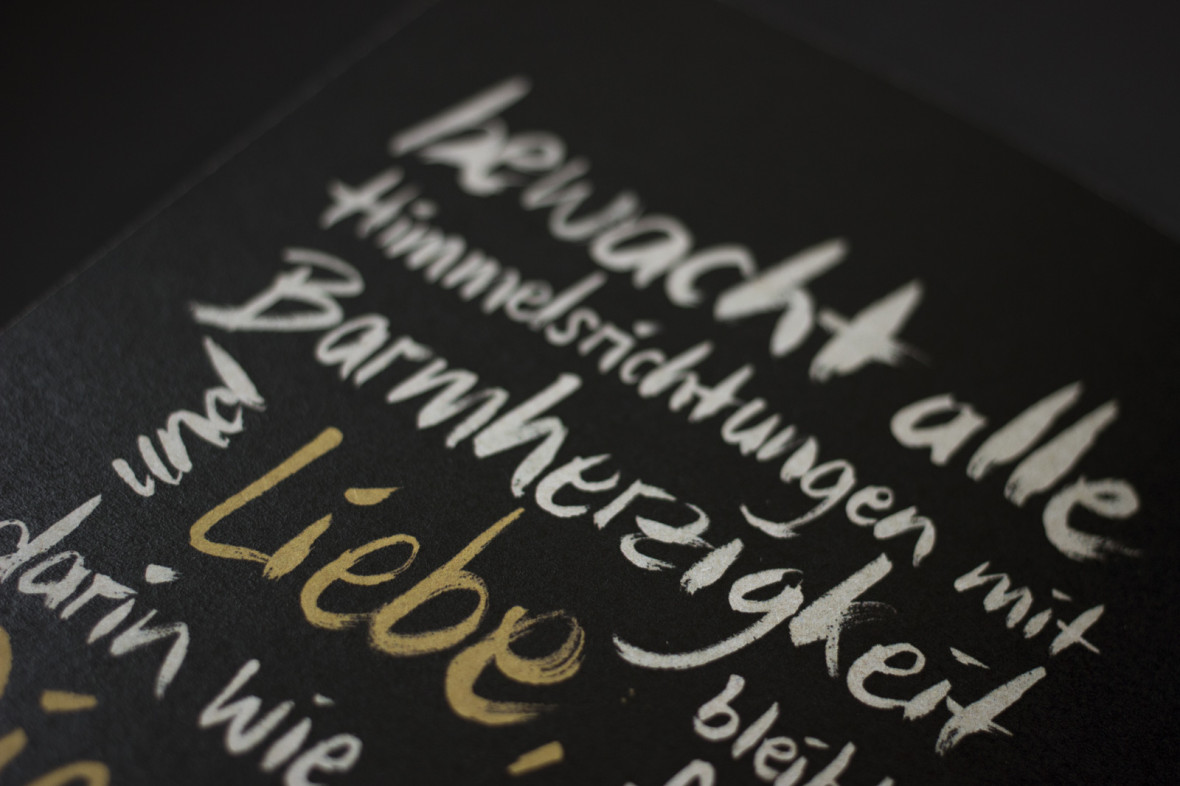 bewacht alle
Himmelsrichtungen mit
Barmherzigkeit
und Liebe,
darin wie